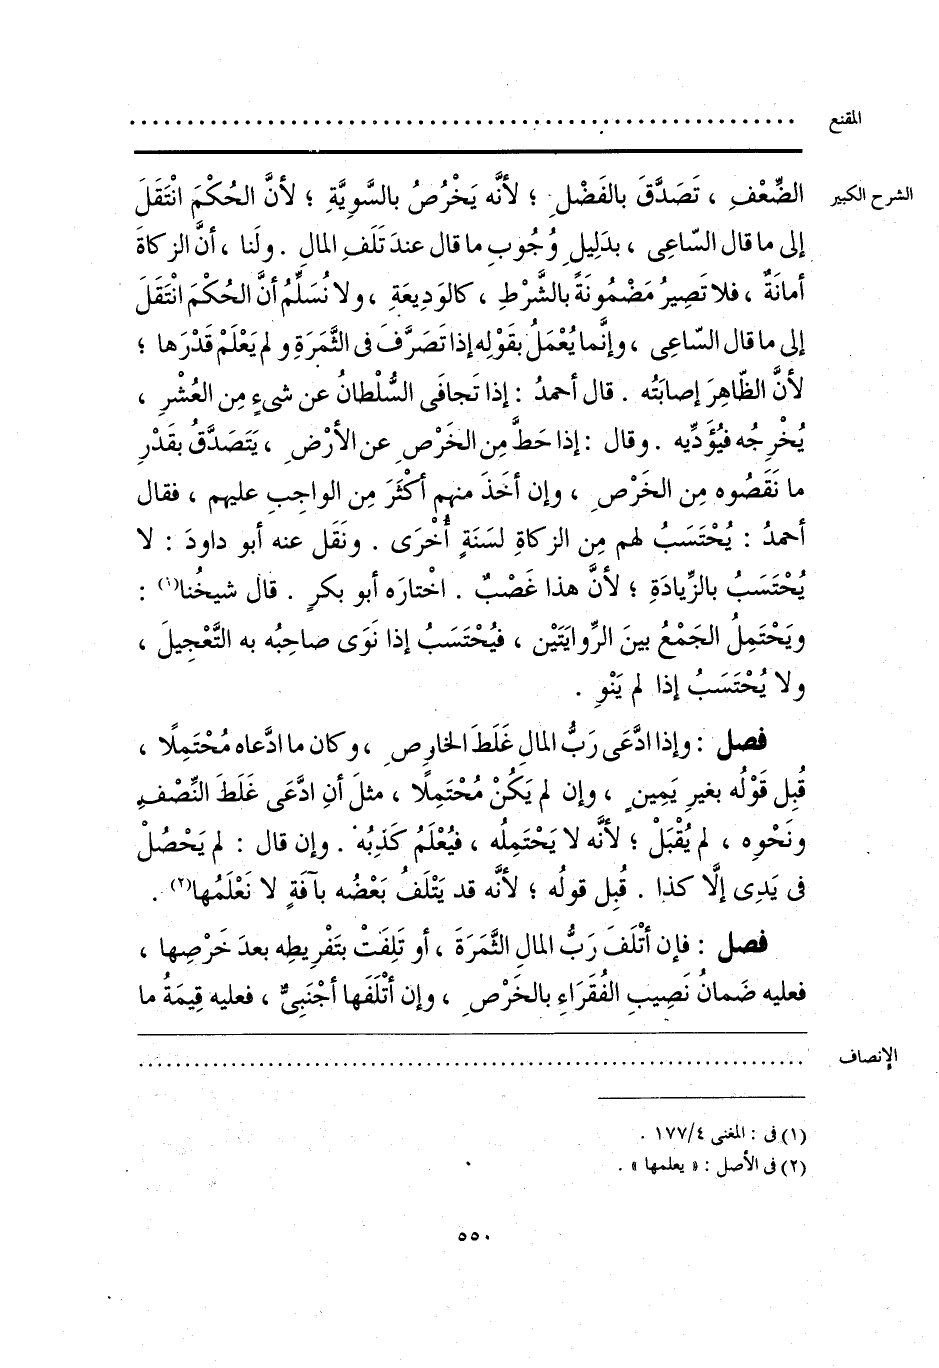 المقنع ........................................
الشرح الكبير
الضِّعْفِ ، تَصَدَّقَ بالفَضْلِ ؛ لأنَّه يَخْرُصُ بالسَّوِيَّةِ ؛ لأنَّ الحُكْمَ انْتَقَلَ
إلى ما قال السّاعِى ، بدَلِيلِ وُجُوبِ ما قال عندَ تَلَفِ المالِ . ولَنا ، أنَّ الزكاةَ
أمانَةٌ ، فلا تَصِيرُ مَضْمُونَةً بالشَّرْطِ ، كالوَدِيعَةِ ، ولا نُسَلِّمُ أنَّ الحُكْمَ انْتَقَلَ
إلى ما قال السّاعِى ، وإنَّما يُعْمَلُ بقَوْلِه إذا تَصَرَّفَ فى الثَّمَرَةِ ولم يَعْلَمْ قَدْرَها ؛
لأنَّ الظّاهِرَ إصابَتُه . قال أحمدُ : إذا تَجافَى السُّلْطانُ عن شىءٍ مِن العُشْرِ ،
يُخْرِجُه فيُؤَدِّيه . وقال : إذا حَطَّ مِن الخَرْصِ عن الأرْضِ ، يَتَصَدَّقُ بقَدْرِ
ما نَقَصُوه مِن الخَرْصِ ، وإن أخَذَ منهم أكْثَرَ مِن الواجِبِ عليهم ، فقال
أحمدُ : يُحْتَسَبُ لهم مِن الزكاةِ لسَنَةٍ أُخْرَى . ونَقَل عنه أبو داودَ : لا
يُحْتَسَبُ بالزِّيادَةِ ؛ لأنَّ هذا غَصْبٌ . اخْتارَه أبو بكرٍ . قال شيخُنا(١) :
ويَحْتَمِلُ الجَمْعُ بينَ الرِّوايَتَيْن ، فيُحْتَسَبُ إذا نَوَى صاحِبُه به التَّعْجِيلَ ،
ولا يُحْتَسَبُ إذا لم يَنْوِ .
فصل : وإذا ادَّعَى رَبُّ المالِ غَلَطَ الخارِصِ ، وكان ما ادَّعاه مُحْتَمِلًا ،
قُبِل قَوْلُه بغيرِ يَمِينٍ ، وإن لم يَكُنْ مُحْتَمِلًا ، مثلَ أنِ ادَّعَى غَلَطَ النِّصْفِ
ونَحْوِه ، لم يُقْبَلْ ؛ لأنَّه لا يَحْتَمِلُه ، فيُعْلَمُ كَذِبُه . وإن قال : لم يَحْصُلْ
فى يَدِى إلَّا كذا . قُبِل قولُه ؛ لأنَّه قد يَتْلَفُ بَعْضُه بآفَةٍ لا نَعْلَمُها(٢) .
فصل : فإن أتْلَفَ رَبُّ المالِ الثَّمَرَةَ ، أو تَلِفَتْ بتَفْرِيطِه بعدَ خَرْصِها ،
فعليه ضَمانُ نَصِيبِ الفُقَراءِ بالخَرْصِ ، وإن أتْلَفَها أجْنَبِىٌّ ، فعليه قِيمَةُ ما
الإنصاف ........................................
(١) فى : المغنى ٤/١٧٧ .
(٢) فى الأصل : « يعلمها » .
٥٥٠